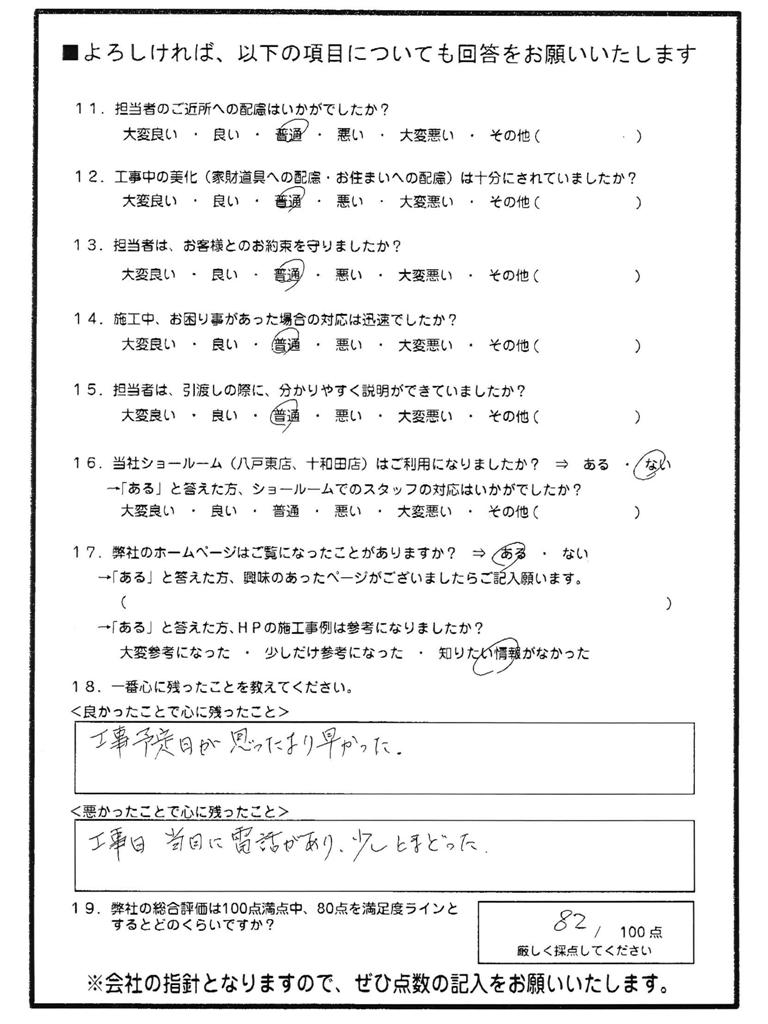 ■よろしければ、以下の項目についても回答をお願いいたします
11．担当者のご近所への配慮はいかがでしたか？
大変良い ・ 良い ・ 普通 ・ 悪い ・ 大変悪い ・ その他（　　　　　）
12．工事中の美化（家財道具への配慮・お住まいへの配慮）は十分にされていましたか？
大変良い ・ 良い ・ 普通 ・ 悪い ・ 大変悪い ・ その他（　　　　　）
13．担当者は、お客様とのお約束を守りましたか？
大変良い ・ 良い ・ 普通 ・ 悪い ・ 大変悪い ・ その他（　　　　　）
14．施工中、お困り事があった場合の対応は迅速でしたか？
大変良い ・ 良い ・ 普通 ・ 悪い ・ 大変悪い ・ その他（　　　　　）
15．担当者は、引渡しの際に、分かりやすく説明ができていましたか？
大変良い ・ 良い ・ 普通 ・ 悪い ・ 大変悪い ・ その他（　　　　　）
16．当社ショールーム（八戸東店、十和田店）はご利用になりましたか？ ⇒ ある ・ ない
→「ある」と答えた方、ショールームでのスタッフの対応はいかがでしたか？
大変良い ・ 良い ・ 普通 ・ 悪い ・ 大変悪い ・ その他（　　　　　）
17．弊社のホームページはご覧になったことがありますか？ ⇒ ある ・ ない
→「ある」と答えた方、興味のあったページがございましたらご記入願います。
（　　　　　）
→「ある」と答えた方、ＨＰの施工事例は参考になりましたか？
大変参考になった ・ 少しだけ参考になった ・ 知りたい情報がなかった
18．一番心に残ったことを教えてください。
＜良かったことで心に残ったこと＞
工事予定日が思ったより早かった.
＜悪かったことで心に残ったこと＞
工事日 当日に電話があり、少しとまどった.
19．弊社の総合評価は100点満点中、80点を満足度ラインと
するとどのくらいですか？
82 / 100点
厳しく採点してください
※会社の指針となりますので、ぜひ点数の記入をお願いいたします。